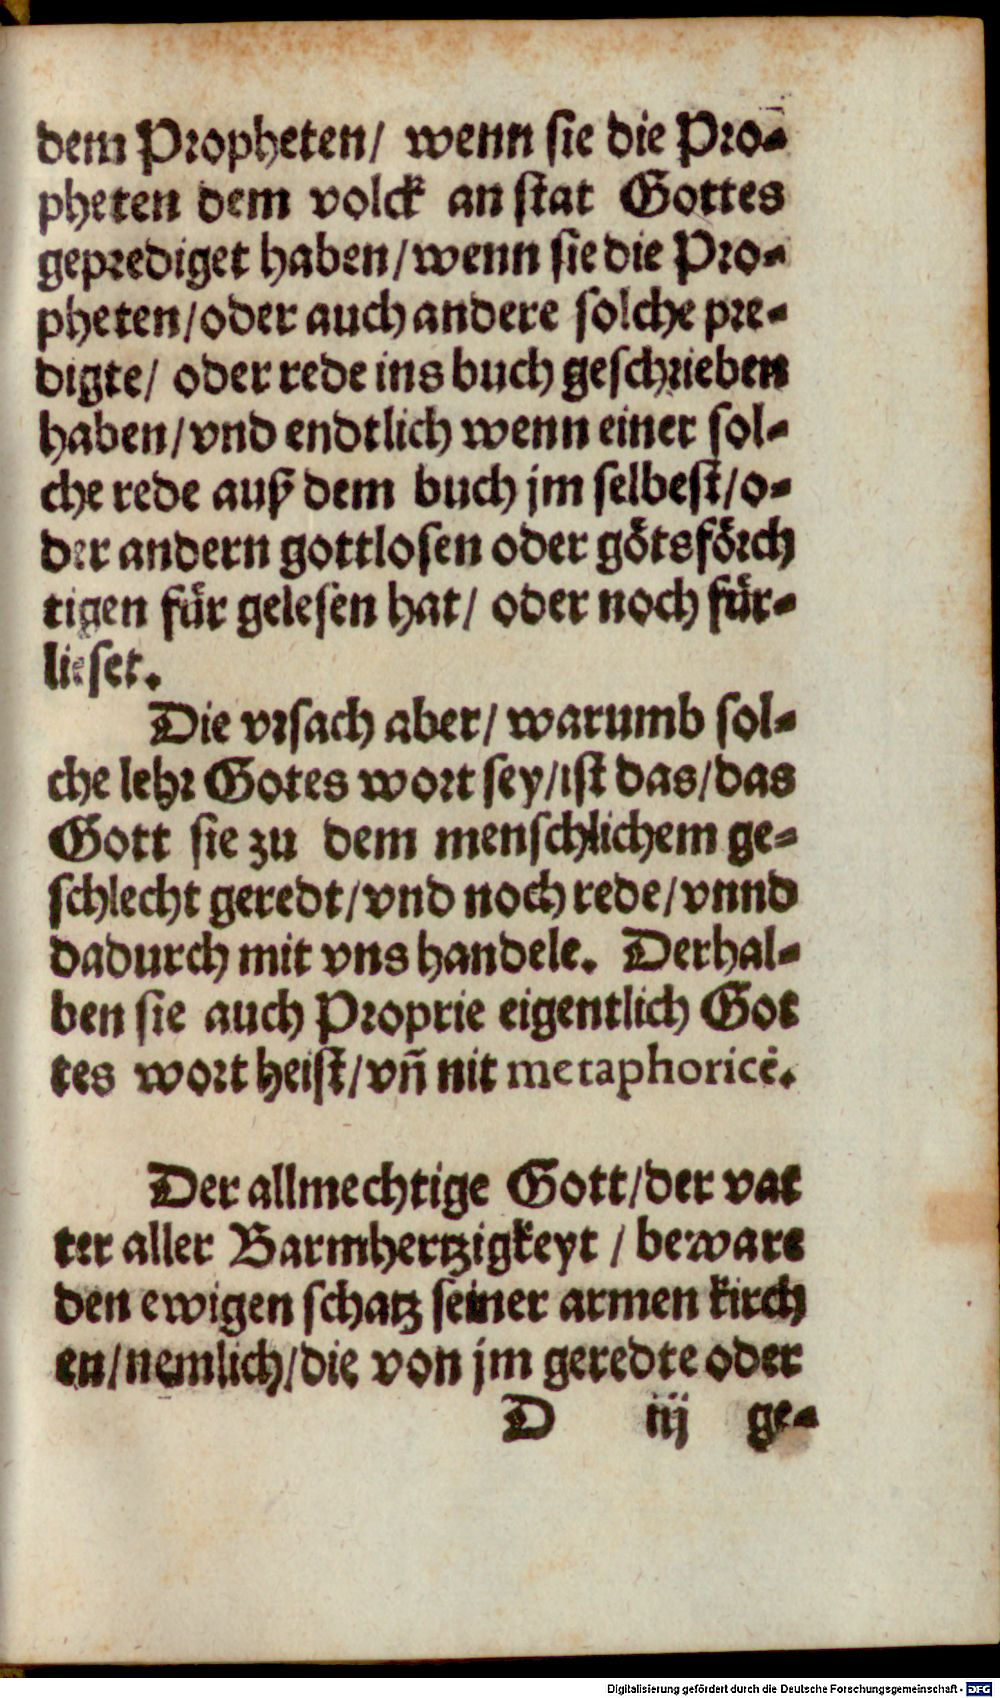 dem Propheten/ wenn sie die Pro-
pheten dem volck an stat Gottes
geprediget haben/wenn sie die Pro-
pheten/oder auch andere solche pre-
digte/ oder rede ins buch geschrieben
haben/vnd endtlich wenn einer sol-
che rede auß dem buch jm selbest/o-
der andern gottlosen oder götsförch
tigen für gelesen hat/ oder noch für-
lieset.
Die vrsach aber/ warumb sol-
che lehr Gotes wort sey/ist das/das
Gott sie zu dem menschlichem ge-
schlecht geredt/vnd noch rede/vnnd
dadurch mit vns handele. Derhal-
ben sie auch Proprie eigentlich Got
tes wort heist/vñ nit metaphoricè.
Der allmechtige Gott/der vat
ter aller Barmhertzigkeyt / beware
den ewigen schatz seiner armen kirch
en/nemlich/die von jm geredte oder
D iij ge-
Digitalisierung gefördert durch die Deutsche Forschungsgemeinschaft - DFG